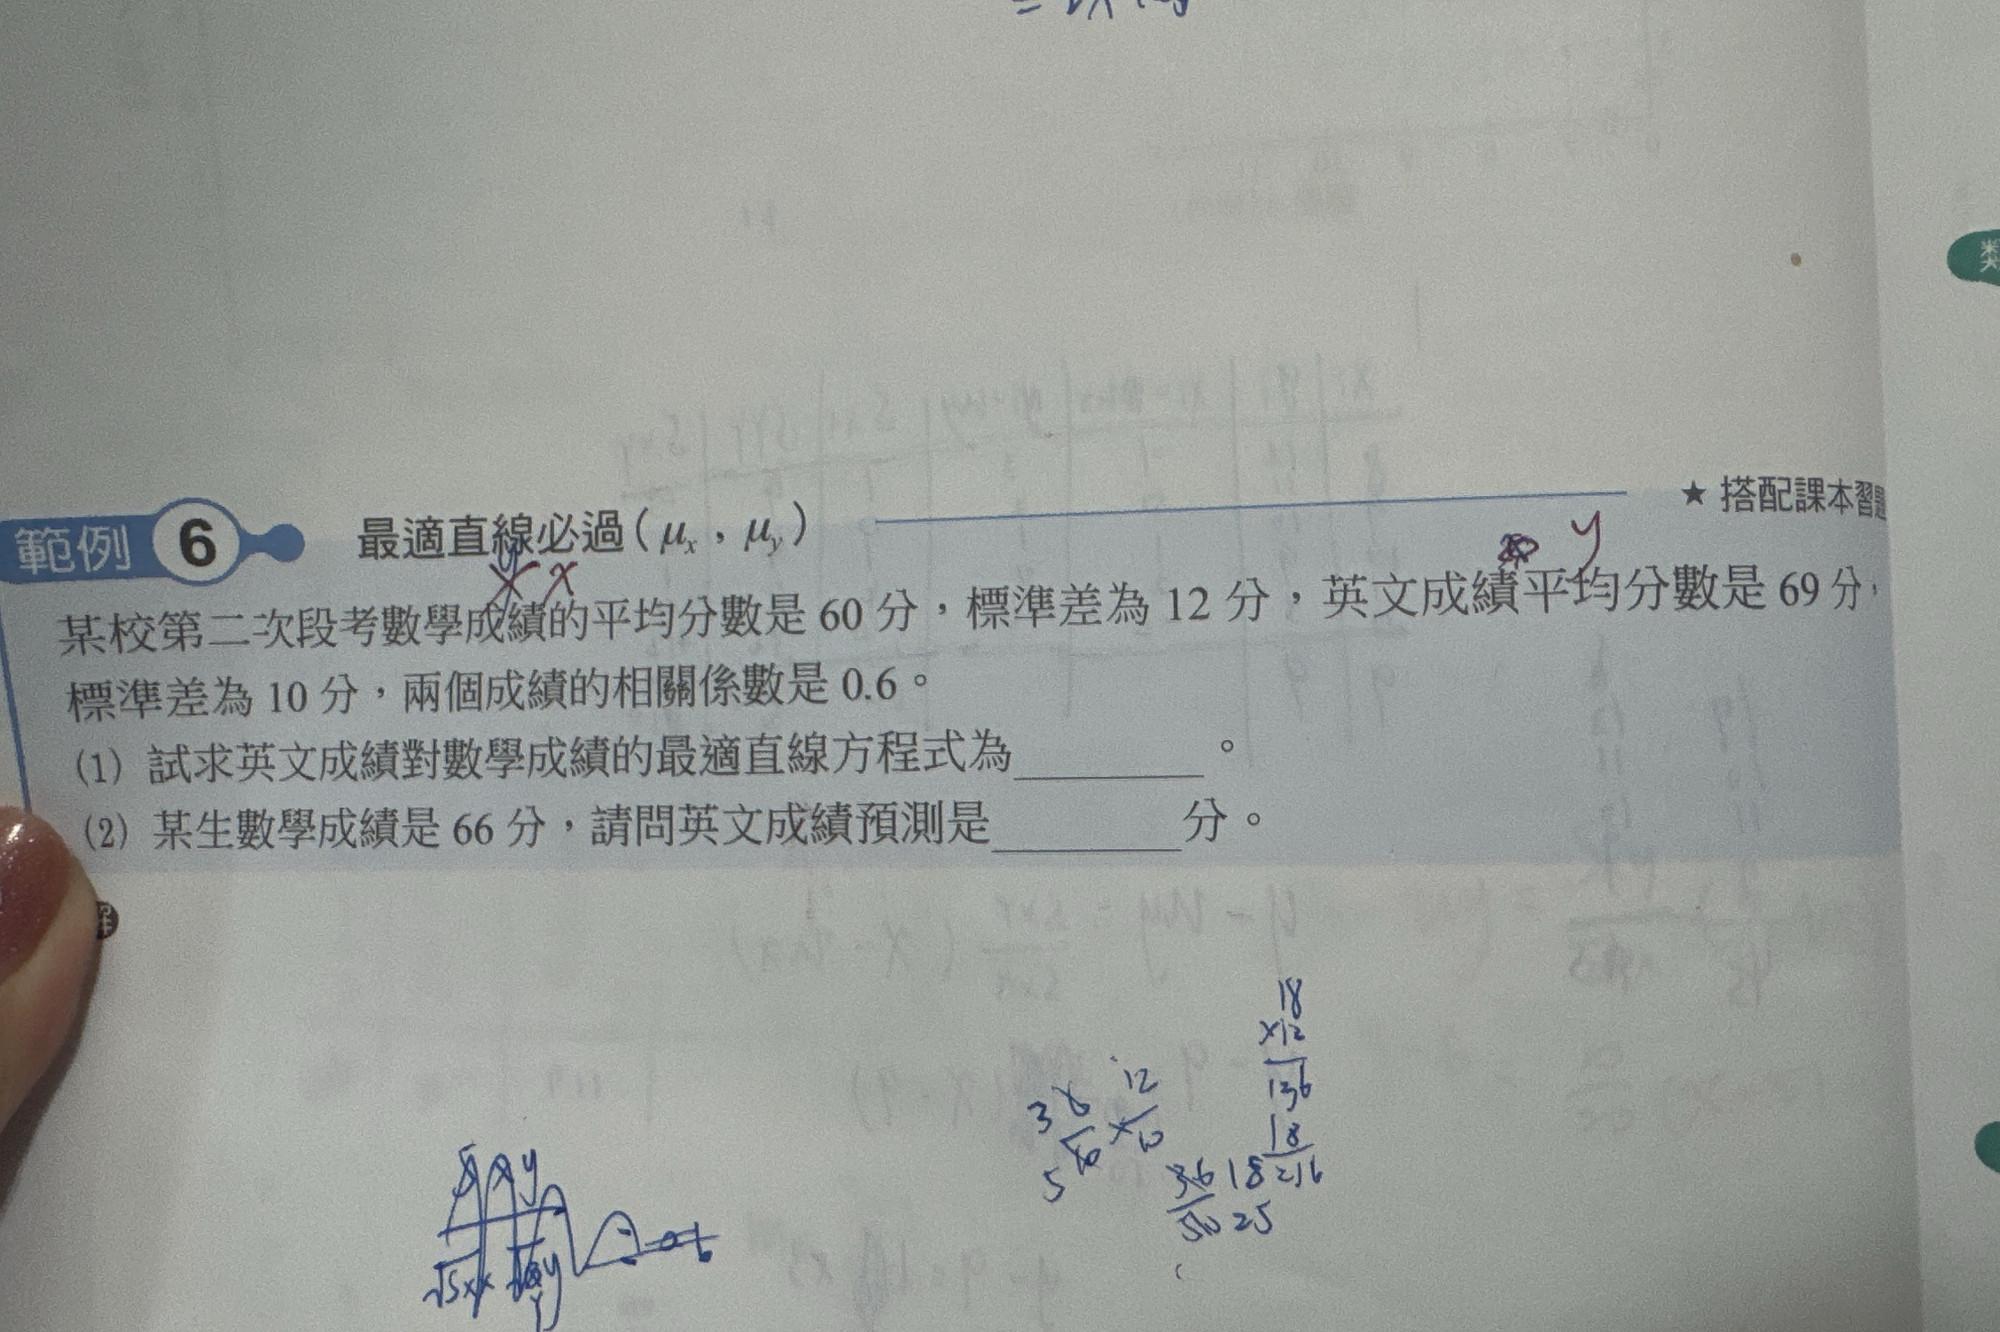 類
★ 搭配課本習題
範例 6 最適直線必過(μx,μy)
y
x
y
某校第二次段考數學成績的平均分數是 60 分,標準差為 12 分,英文成績平均分數是 69 分,
標準差為 10 分,兩個成績的相關係數是 0.6。
(1) 試求英文成績對數學成績的最適直線方程式為________。
(2) 某生數學成績是 66 分,請問英文成績預測是________分。
解
18
×12
136
18
216
3
12
10
5
36
50
18
25